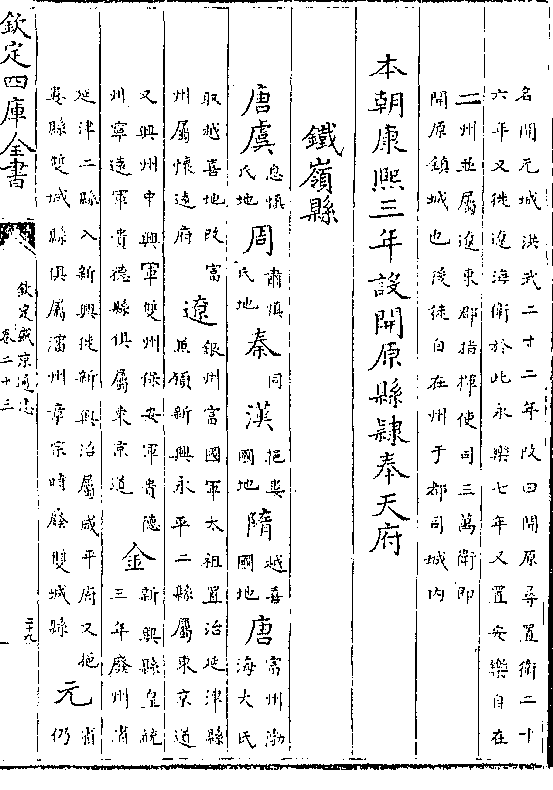 名開元城洪武二十二年改曰開原尋置衛二十
六年又徙遼海衛於此永樂七年又置安樂自在
二州並屬遼東都指揮使司三萬衛即
開原鎮城也後徙自在州于都司城內
本朝康熙三年設開原縣隸奉天府
鐵嶺縣
唐虞息慎氏地周肅慎氏地秦同漢挹婁國地隋越喜國地唐富州渤海大氏
取越喜地改富州屬懷遠府遼銀州富國軍太祖置治延津縣兼領新興永平二縣屬東京道
又興州中興軍雙州保安軍貴德州寧遠軍貴德縣俱屬東京道金新興縣皇統三年廢州省
延津二縣入新興徙新興治屬咸平府又挹婁縣雙城縣俱屬瀋州章宗時廢雙城縣元省仍
欽定四庫全書
欽定盛京通志
卷二十三
二十九